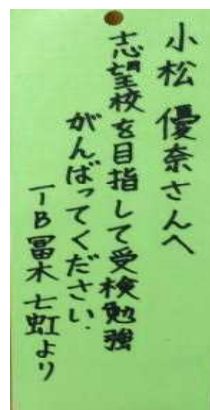 小松優奈さんへ
志望校を目指して受検勉強
がんばってください.
1B冨木七虹より